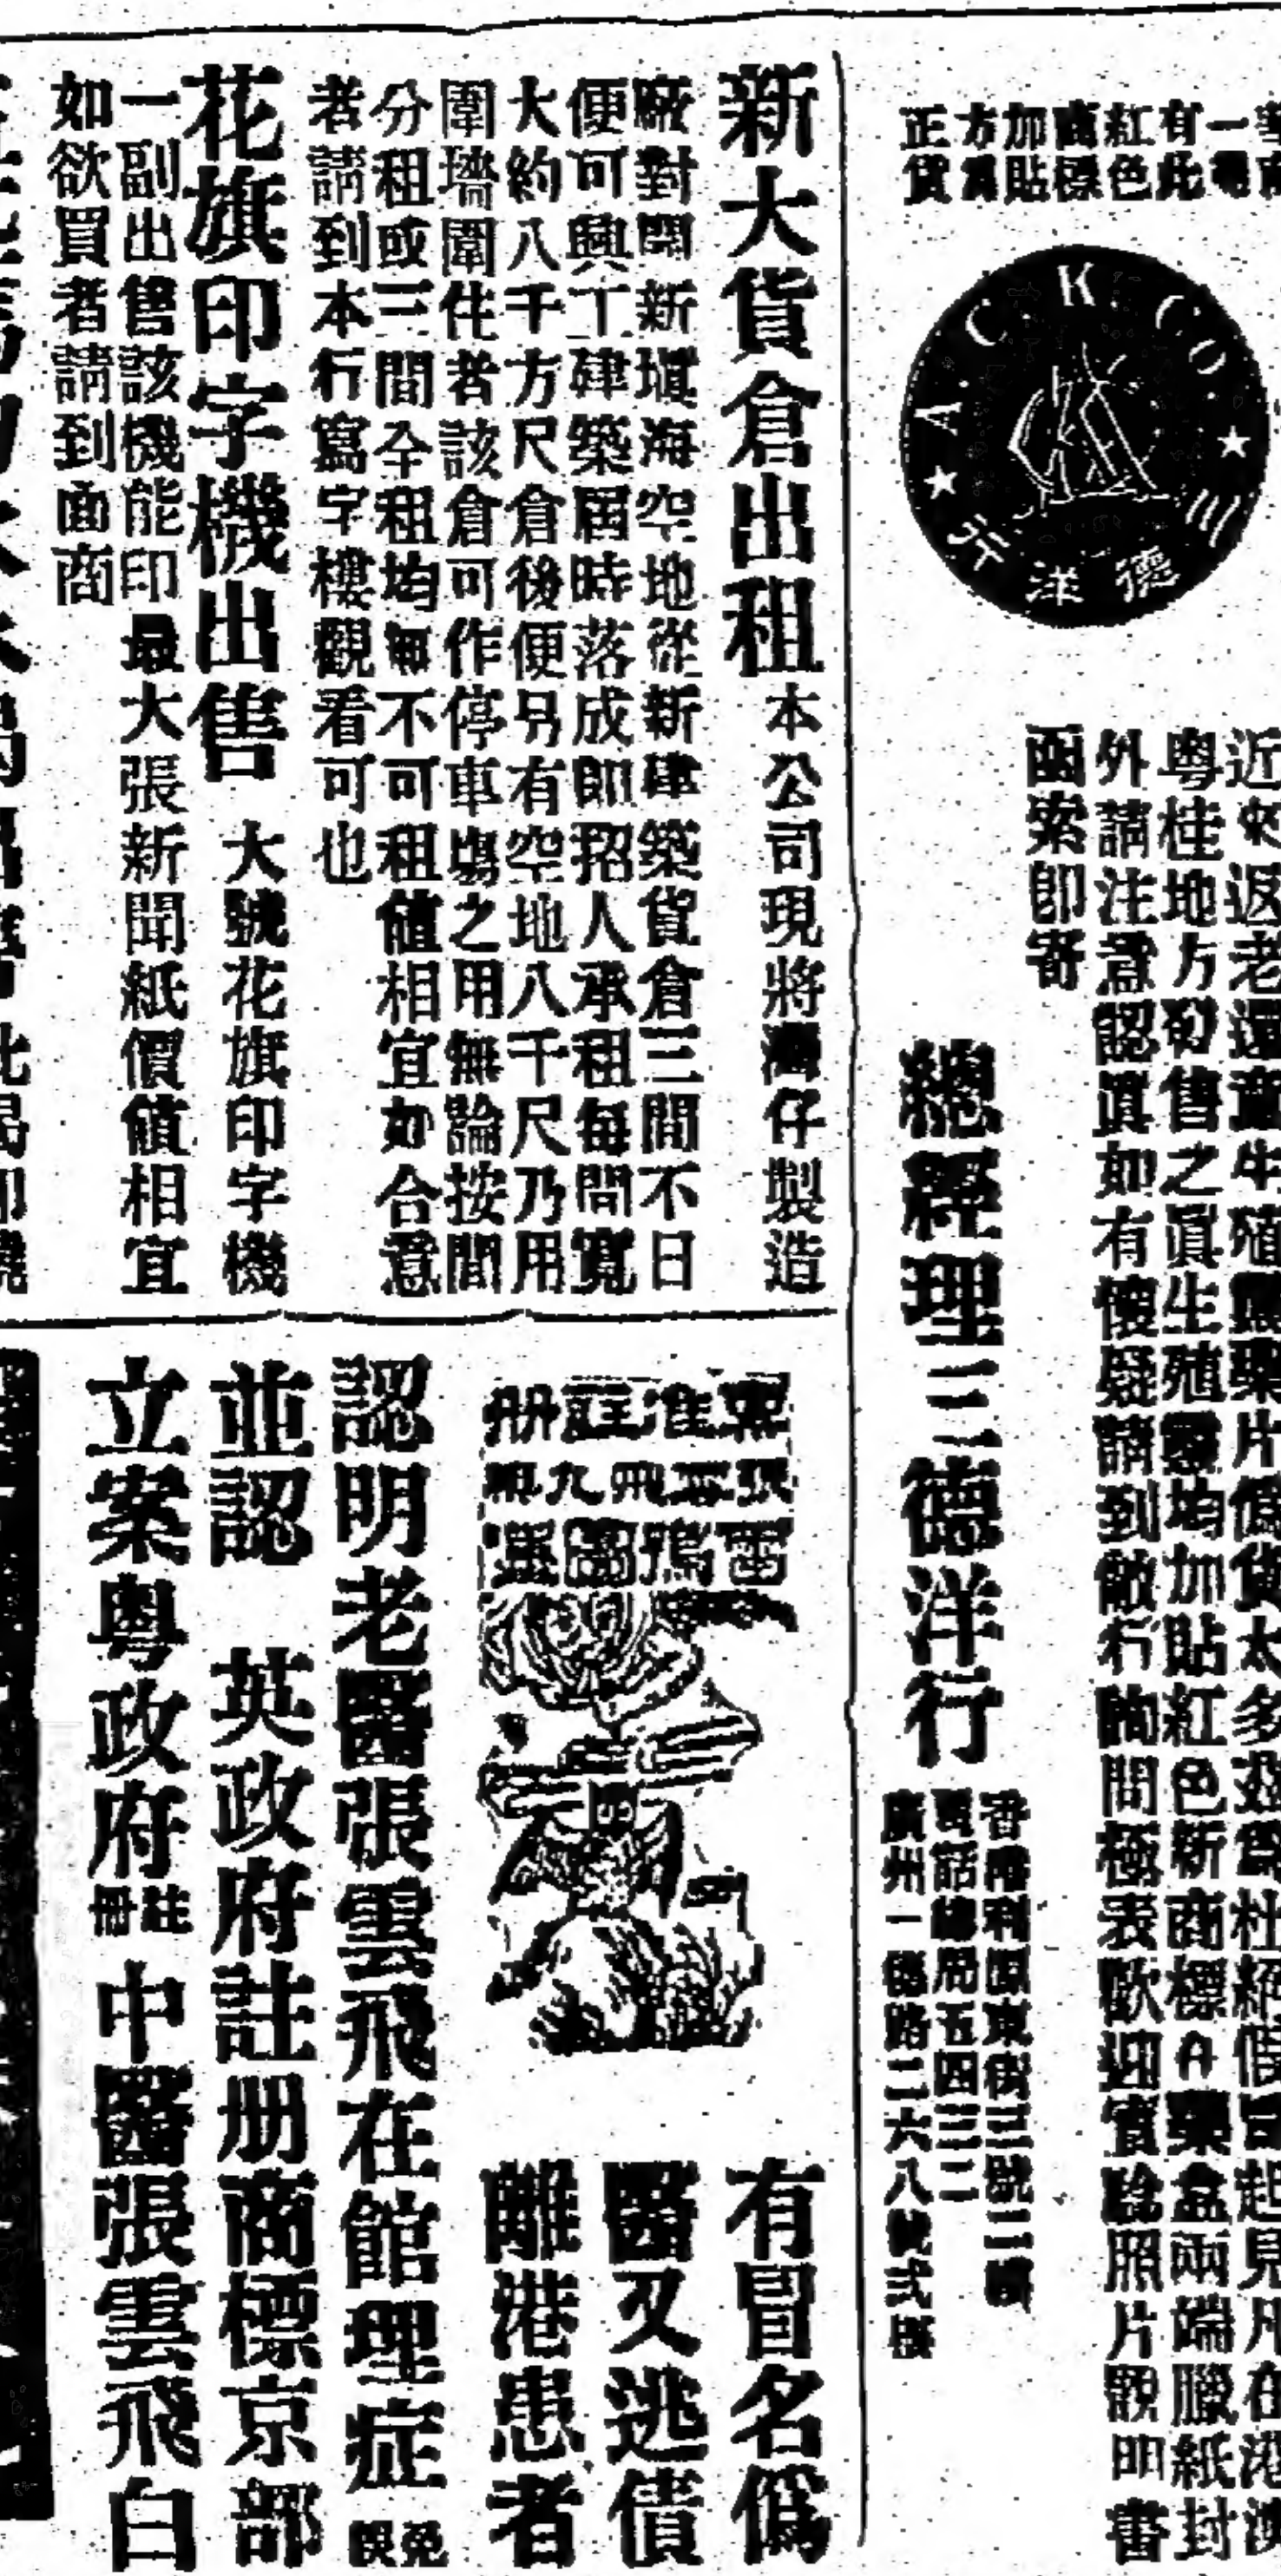 有此
紅色
商標
加貼
方為
正貨
A. C. K. CO.
三德洋行
粵桂地方發售之眞生殖靈均加貼紅色新商標藥盒兩端臘紙封
外請注意認眞如有懷疑請到敝行詢問極表歡迎實驗照片說明書
函索即寄
總經理三德洋行
香港利源東街三號二樓
電話總局五四三二
廣州一德路二六八號式樓
新大貨倉出租
本公司現將灣仔製造
廠對開新塡海空地從新建築貨倉三間不日
便可興工建築屆時落成即招人承租每間寬
大約八千方尺倉後便另有空地八千尺乃用
圍墻圍住者該倉可作停車塲之用無論按間
分租或三間全租均無不可租値相宜如合意
者請到本行寫字樓觀看可也
花旗印字機出售
大號花旗印字機
一副出售該機能印最大張新聞紙價値相宜
如欲買者請到面商
有冒名僞
醫又逃債
離港患者
認明老醫張雲飛在館理症免悞
並認 英政府註册商標京部
立案粵政府註冊中醫張雲飛白